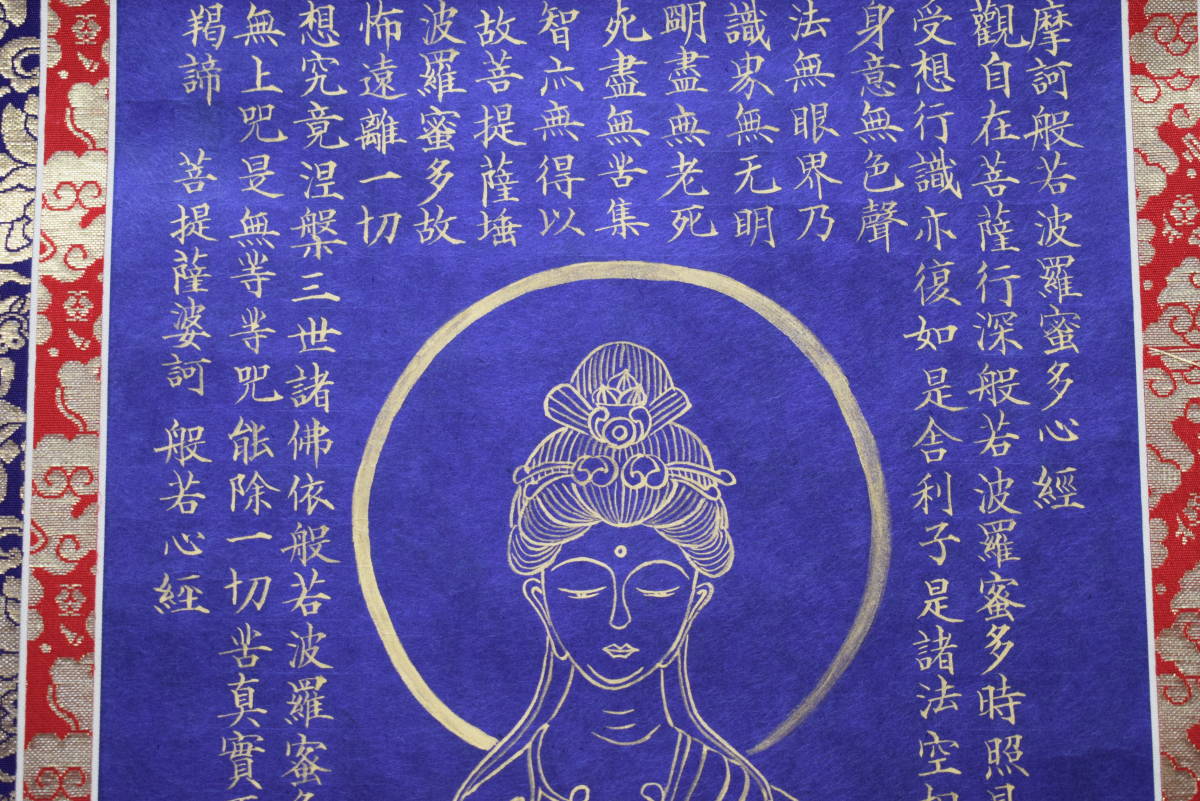 摩訶般若波羅蜜多心經
觀自在菩薩行深般若波羅蜜多時照見
受想行識亦復如是舍利子是諸法空相
身意無色聲
法無眼界乃
識界無无明
明盡無老死
死盡無苦集
智亦無得以
故菩提薩埵
波羅蜜多故
怖遠離一切
想究竟涅槃三世諸佛依般若波羅蜜多
無上咒是無等等咒能除一切苦真實不
羯諦 菩提薩婆訶 般若心經